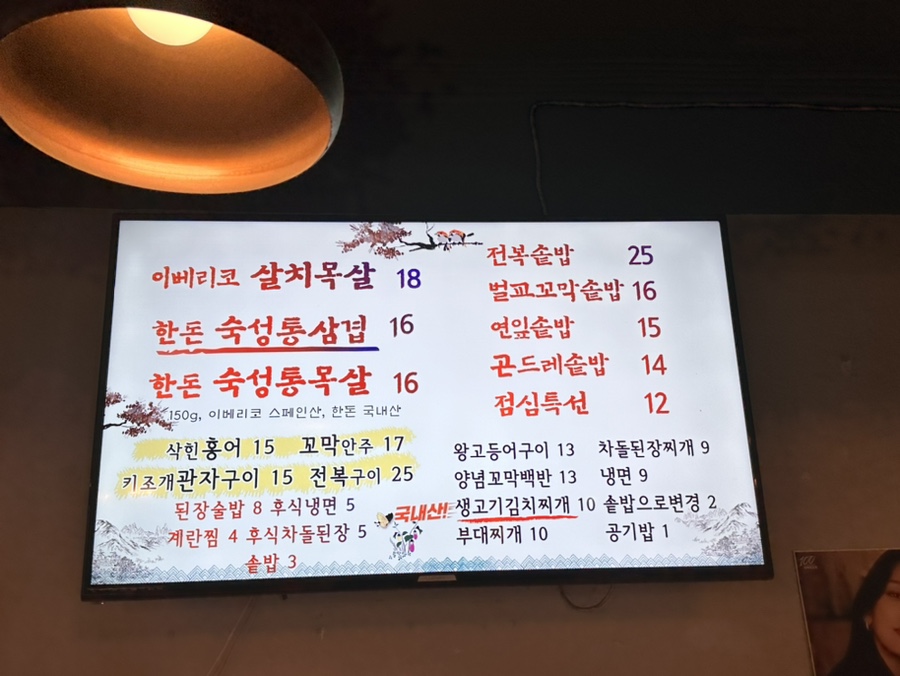 이베리코 살치목살 18
한돈 숙성통삼겹 16
한돈 숙성통목살 16
150g, 이베리코 스페인산, 한돈 국내산
삭힌홍어 15 꼬막안주 17
키조개관자구이 15 전복구이 25
된장술밥 8 후식냉면 5
계란찜 4 후식차돌된장 5
솥밥 3
전복솥밥 25
벌교꼬막솥밥 16
연잎솥밥 15
곤드레솥밥 14
점심특선 12
왕고등어구이 13 차돌된장찌개 9
양념꼬막백반 13 냉면 9
국내산! 생고기김치찌개 10 솥밥으로변경 2
부대찌개 10 공기밥 1